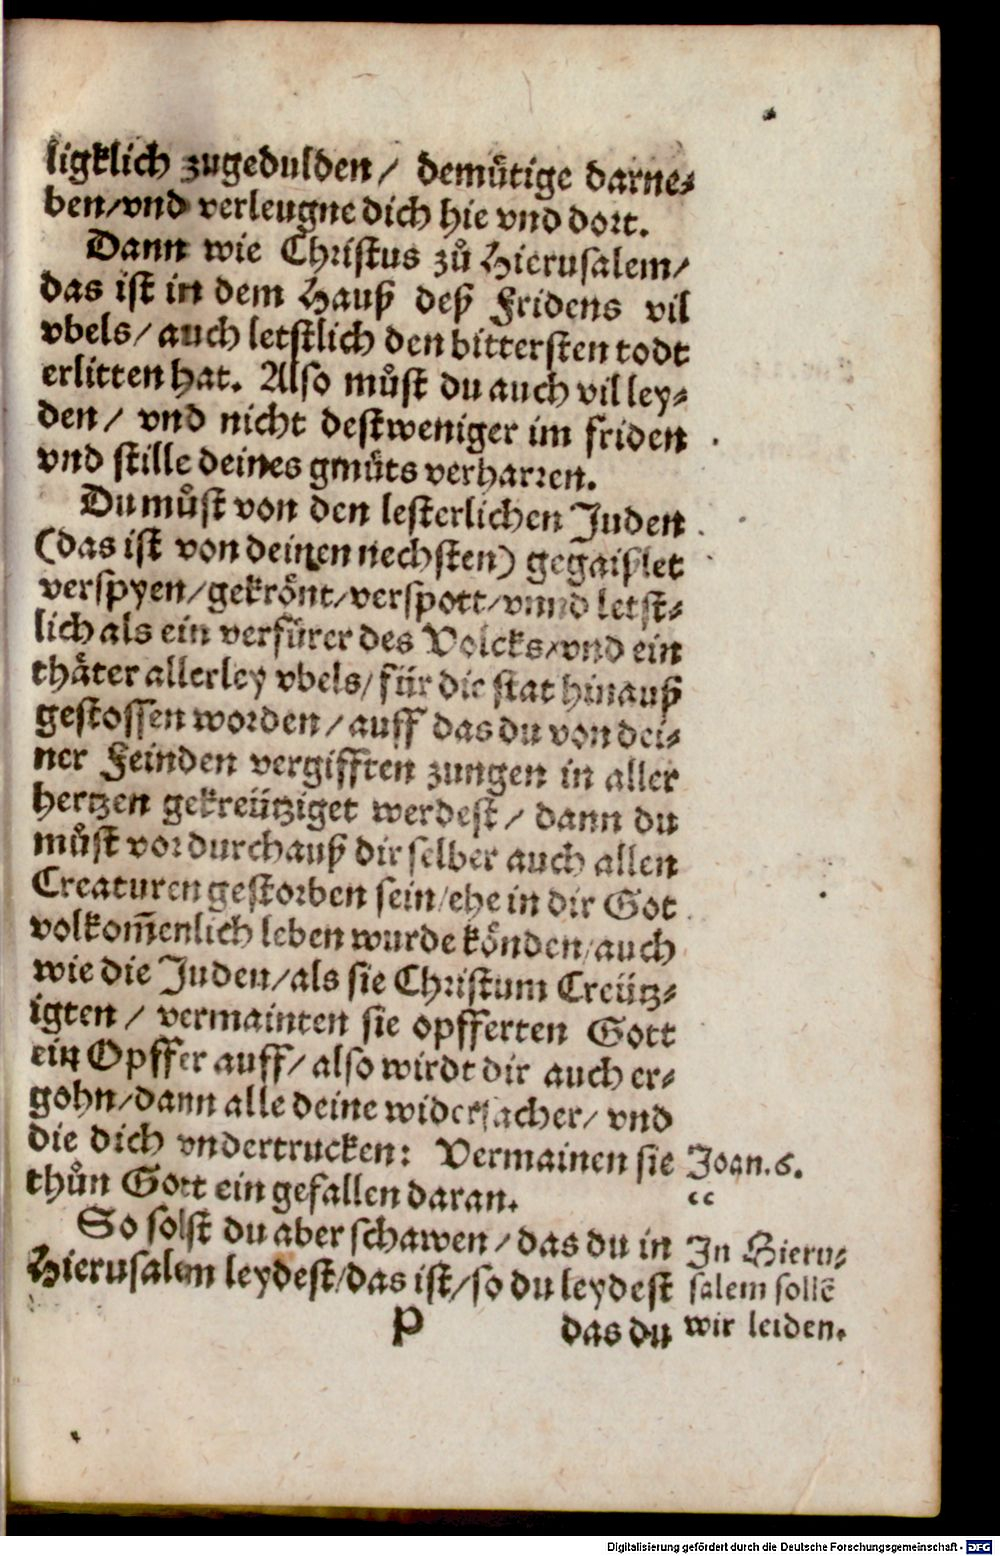 ligklich zugedulden/ demuͤtige darne⸗
ben/vnd verleugne dich hie vnd dort.
Dann wie Christus zuͦ Hierusalem/
das ist in dem Hauß deß Fridens vil
vbels/ auch letstlich den bittersten todt
erlitten hat. Also muͦst du auch vil ley⸗
den/ vnd nicht destweniger im friden
vnd stille deines gmuͤts verharren.
Du muͦst von den lesterlichen Juden
(das ist von deinen nechsten) gegaißlet
verspyen/gekroͤnt/verspott/vnnd letst⸗
lich als ein verfuͤrer des Volcks/vnd ein
thaͤter allerley vbels/ für die stat hinauß
gestossen worden/ auff das du von dei⸗
ner Feinden vergifften zungen in aller
hertzen gekreütziget werdest/ dann du
muͦst vor durchauß dir selber auch allen
Creaturen gestorben sein/ehe in dir Got
volkom̃enlich leben wurde koͤnden/auch
wie die Juden/als sie Christum Creütz⸗
igten/ vermainten sie opfferten Gott
ein Opffer auff/ also wirdt dir auch er⸗
gohn/dann alle deine widersacher/ vnd
die dich vndertrucken: Vermainen sie
thuͦn Gott ein gefallen daran.
Joan.6.
“
So solst du aber schawen/das du in
Hierusalem leydest/das ist/so du leydest
In Hieru⸗
salem sollē
wir leiden.
P das du
Digitalisierung gefördert durch die Deutsche Forschungsgemeinschaft - DFG